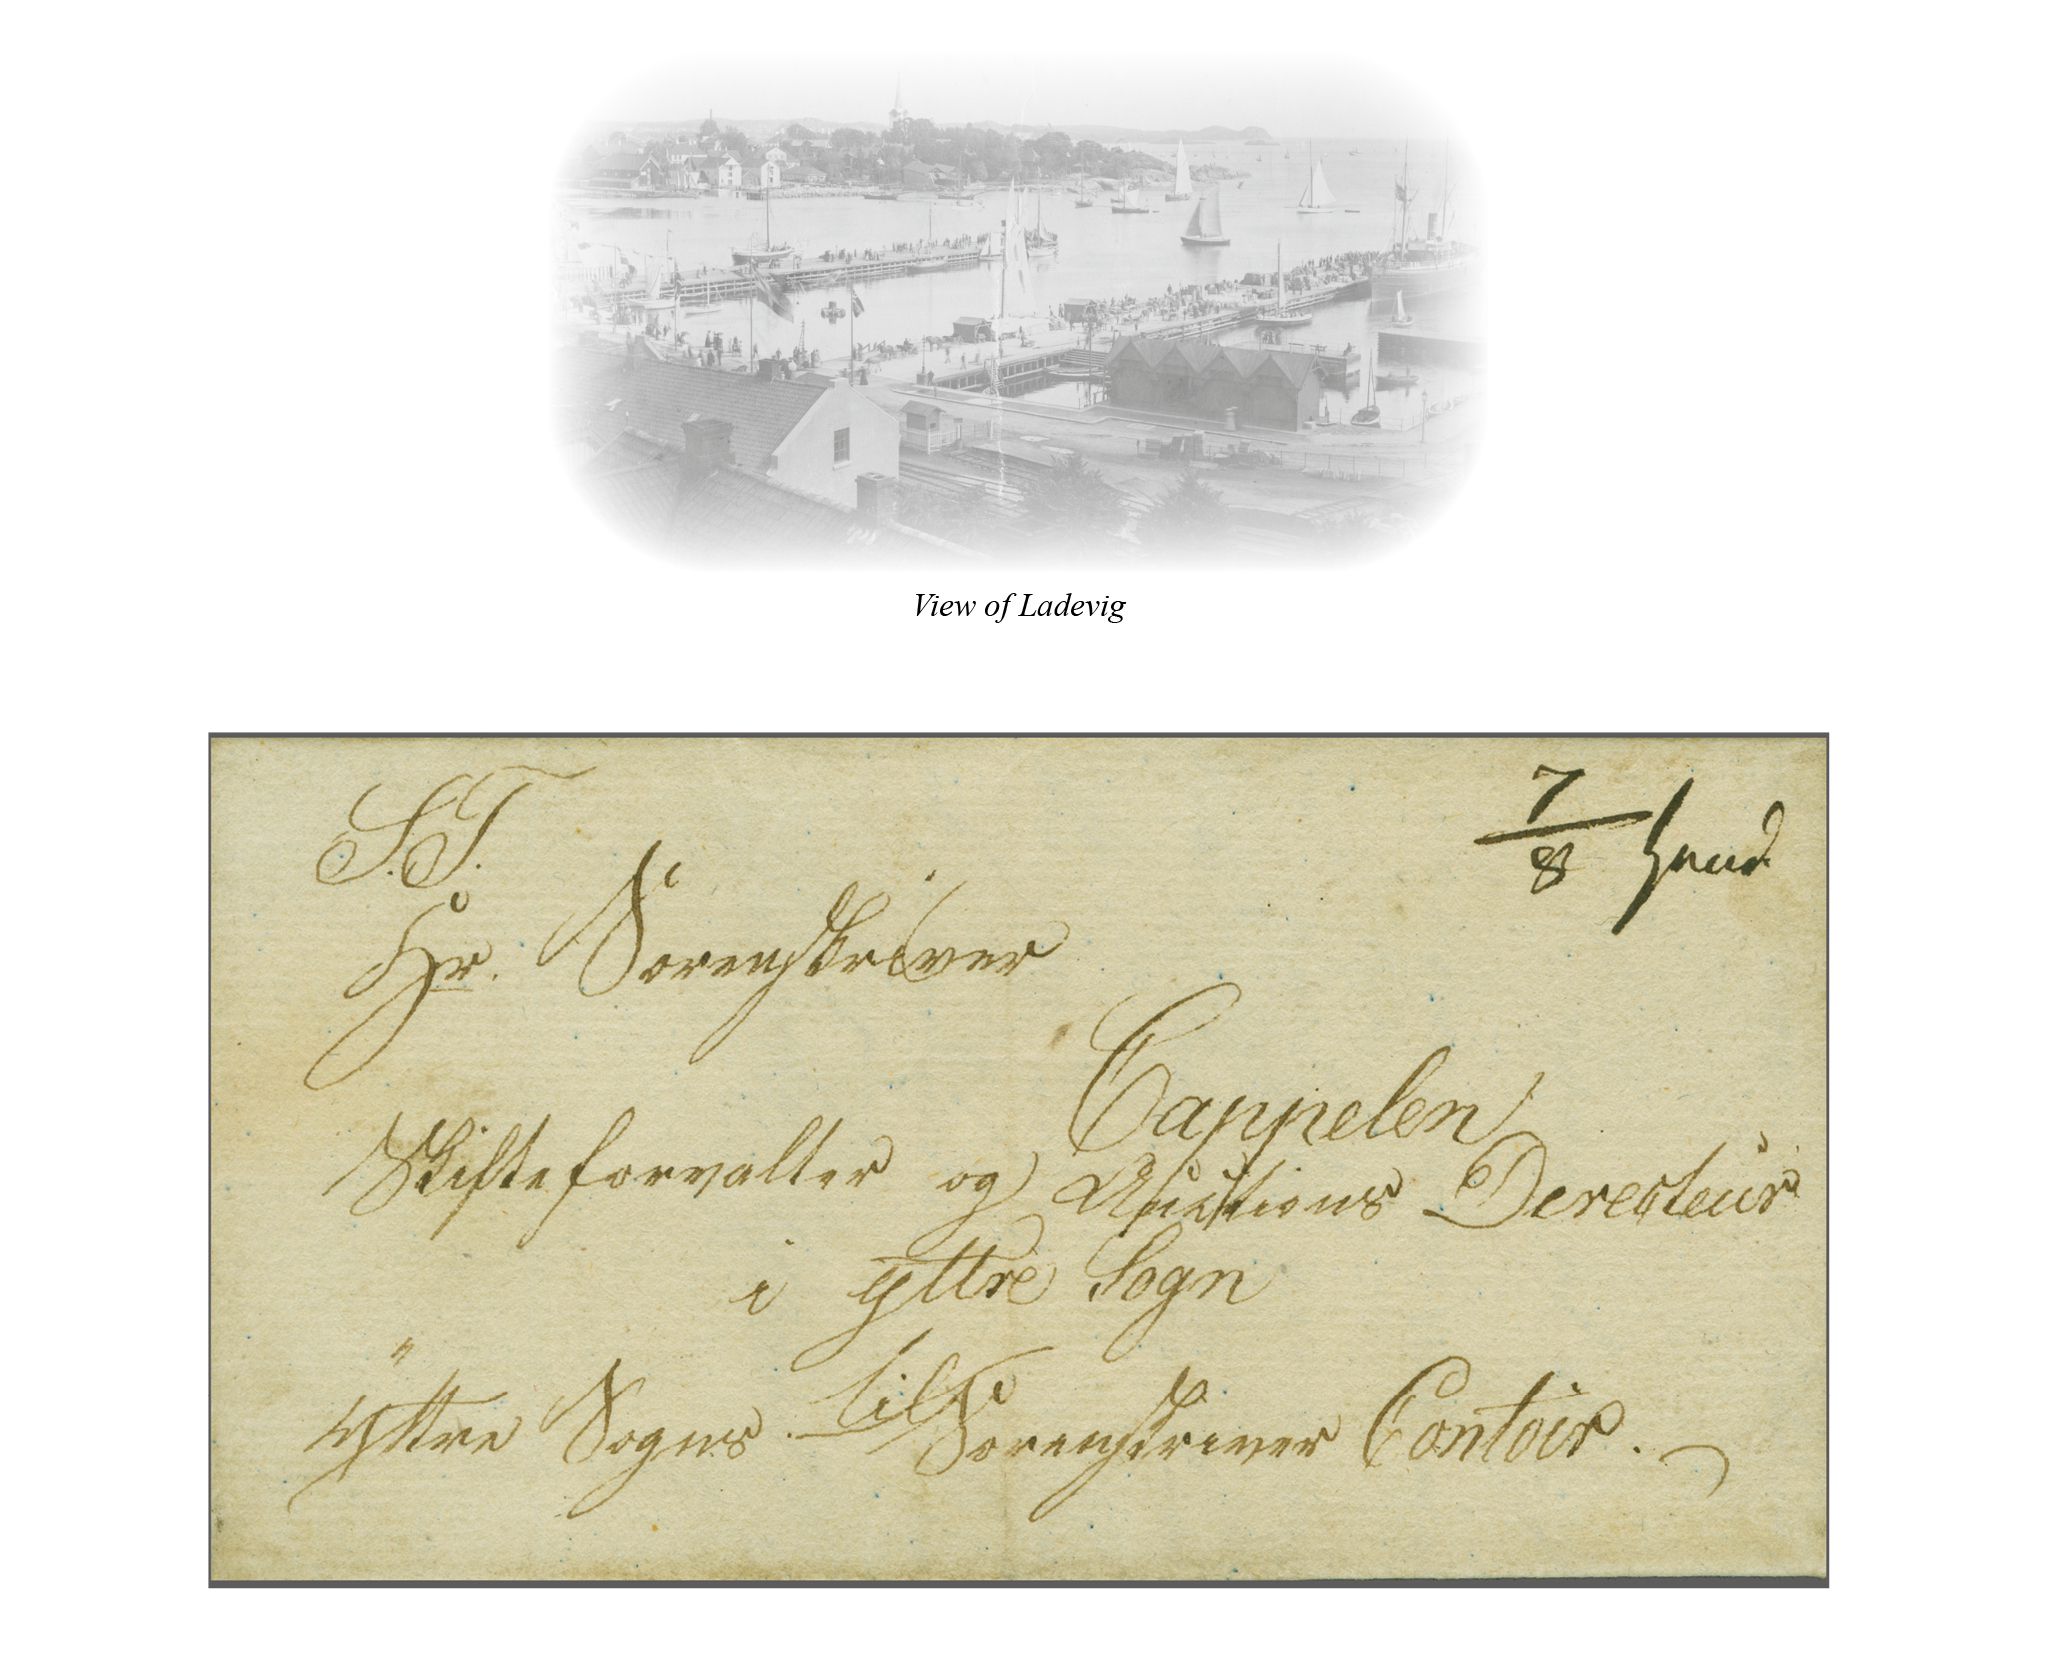 View of Ladevig
S.T.
7/8
Hr. Sorenskriver
Cappelen
Skifteforvalter og Auctions Derecteur
i Yttre Sogn
Yttre Sogns Sorenskriver Contoir.
til